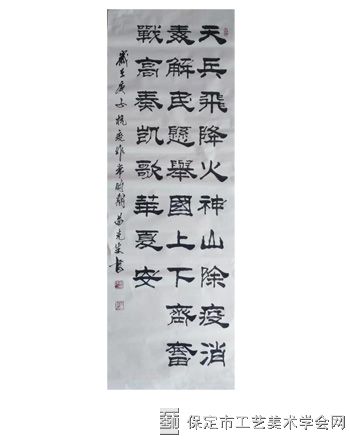 天兵飛降火神山除疫消
毒解民懸舉國上下齊奮
戰高奏凱歌華夏安
歲在庚子抗疫非常時期
保定市工艺美术学会网